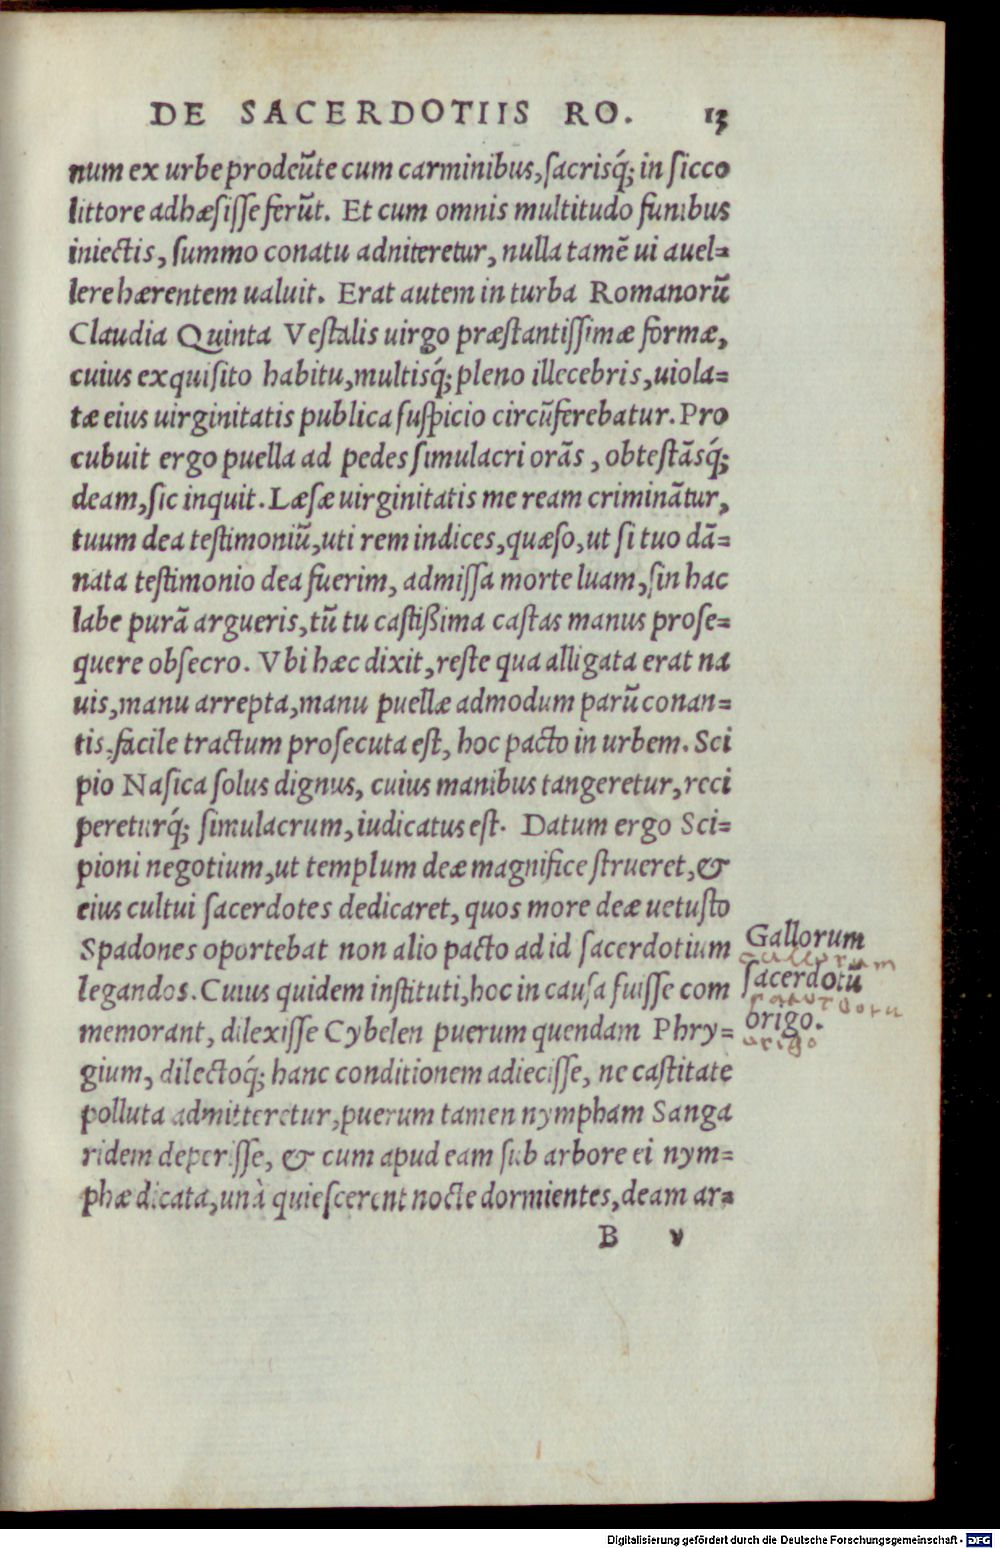 DE SACERDOTIIS RO. 13
num ex urbe prodeũte cum carminibus, sacrisq́; in sicco
littore adhæsisse ferũt. Et cum omnis multitudo funibus
iniectis, summo conatu adniteretur, nulla tamẽ ui auel=
lere hærentem ualuit. Erat autem in turba Romanorũ
Claudia Quinta Vestalis uirgo præstantissimæ formæ,
cuius exquisito habitu, multisq́; pleno illecebris, uiola=
tæ eius uirginitatis publica suspicio circũferebatur. Pro
cubuit ergo puella ad pedes simulacri orãs, obtestãsq́;
deam, sic inquit. Læsæ uirginitatis me ream criminãtur,
tuum dea testimoniũ, uti rem indices, quæso, ut si tuo dã=
nata testimonio dea fuerim, admissa morte luam, sin hac
labe purã argueris, tũ tu castißima castas manus prose=
quere obsecro. Vbi hæc dixit, reste qua alligata erat na
uis, manu arrepta, manu puellæ admodum parũ conan=
tis, facile tractum prosecuta est, hoc pacto in urbem. Sci
pio Nasica solus dignus, cuius manibus tangeretur, reci
pereturq́; simulacrum, iudicatus est. Datum ergo Sci=
pioni negotium, ut templum deæ magnifice strueret, &
eius cultui sacerdotes dedicaret, quos more deæ uetusto
Spadones oportebat non alio pacto ad id sacerdotium
legandos. Cuius quidem instituti, hoc in causa fuisse com
memorant, dilexisse Cybelen puerum quendam Phry=
gium, dilectoq́; hanc conditionem adiecisse, ne castitate
polluta admitteretur, puerum tamen nympham Sanga
ridem deperisse, & cum apud eam sub arbore ei nym=
phæ dicata, unà quiescerent nocte dormientes, deam ar=
B v
Gallorum
gallorum
sacerdotũ
sacerdotu
origo.
origo
Digitalisierung gefördert durch die Deutsche Forschungsgemeinschaft - DFG